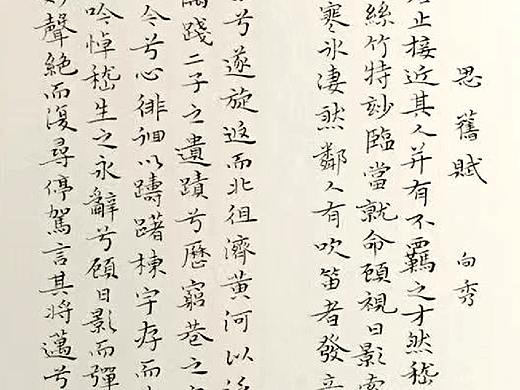 思舊賦 向秀
止接近其人并有不羈之才然嵇
絲竹特妙臨當就命顧視日影索
寒冰淒然鄰人有吹笛者發
兮遂旋返而北徂濟黃河以
隅踐二子之遺蹟兮歷窮巷之
今兮心徘徊以躊躇棟宇存而
吟悼嵇生之永辭兮顧日影而彈
妙聲絕而復尋停駕言其將邁兮